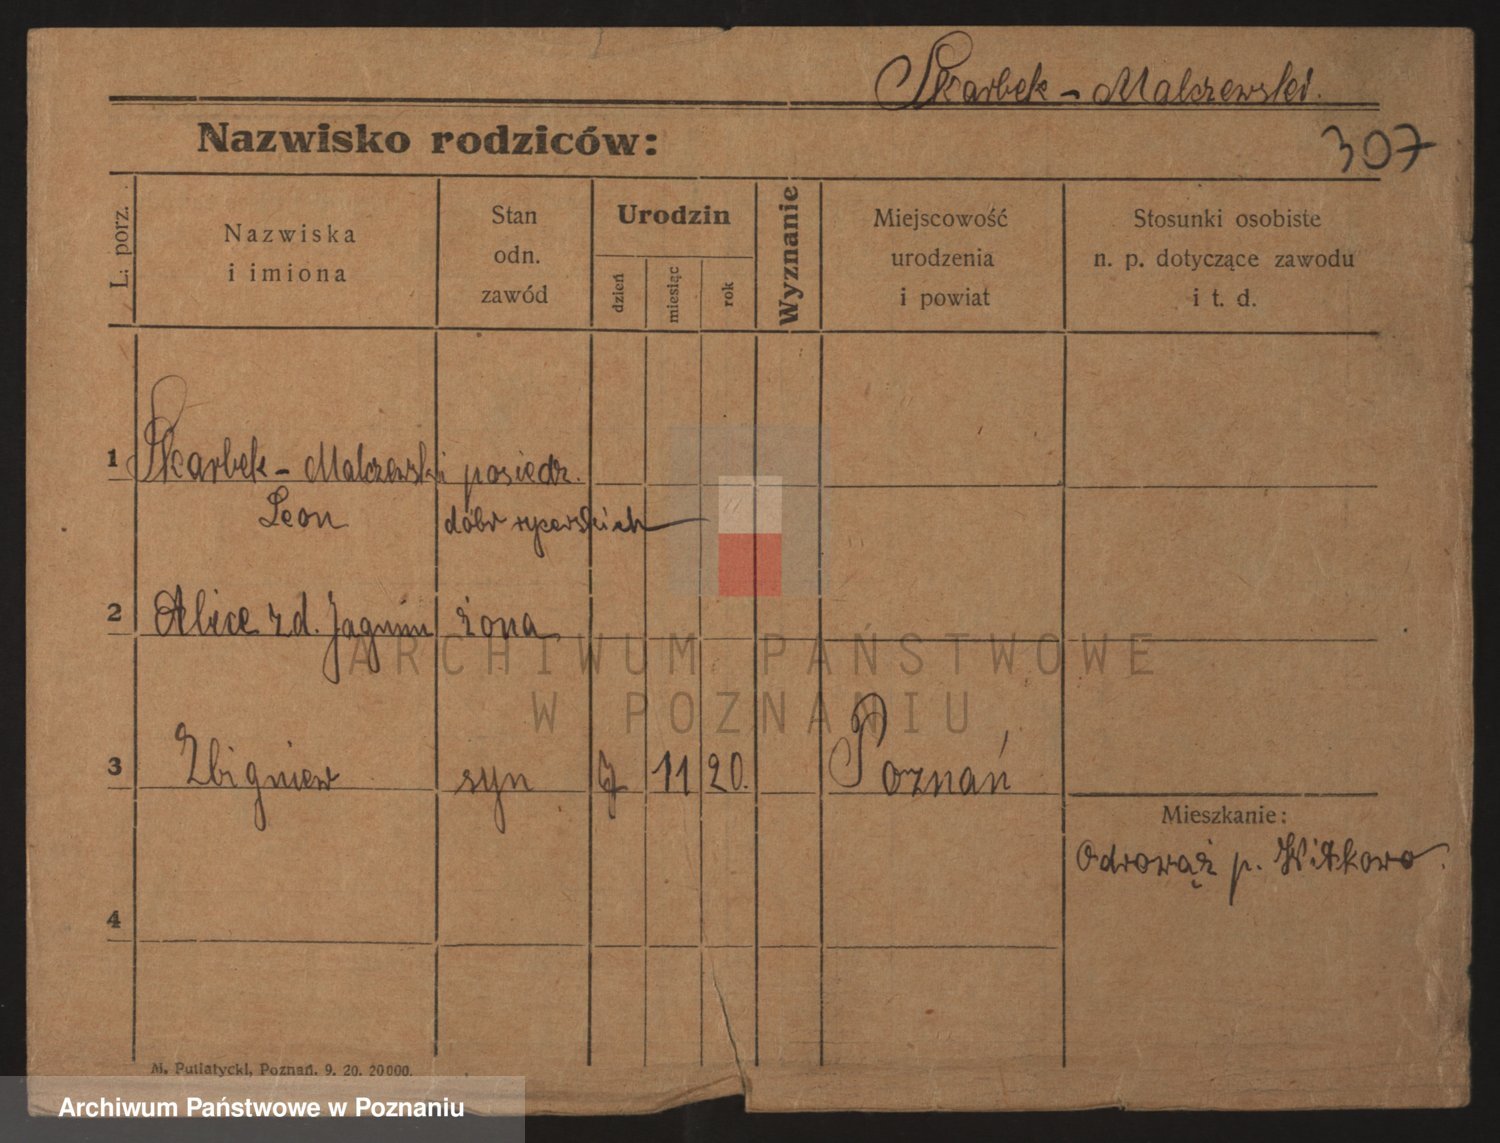 Skarbek - Malczewski.
Nazwisko rodziców:
307
L. porz.
Nazwiska
i imiona
Stan
odn.
zawód
Urodzin
dzień
miesiąc
rok
Wyznanie
Miejscowość
urodzenia
i powiat
Stosunki osobiste
n. p. dotyczące zawodu
i t. d.
1 Skarbek - Malczewski posiedz.
Leon dóbr rycerskich
2 Alice z d. żona
3 Zbigniew syn 7 11 20. Poznań
Mieszkanie:
Odrowąż p. Witkowo.
4
M. Putiatycki, Poznań. 9. 20. 20000.
ARCHIWUM PAŃSTWOWE
W POZNANIU
Archiwum Państwowe w Poznaniu